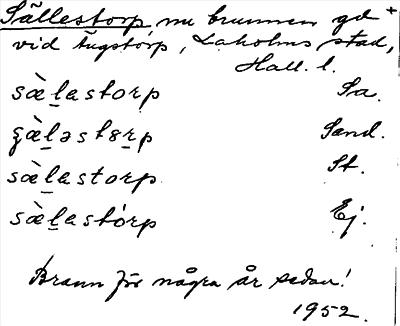 Sällestorp nu brunnen gd +
vid Tugstorp, Laholms stad,
Hall. l.
sæ̀lastorp Sa.
sæ̀ləstɞrp Sand.
sæ̀lastorp St.
sæ̀lastórp Ej.
Brann för några år sedan!
1952.